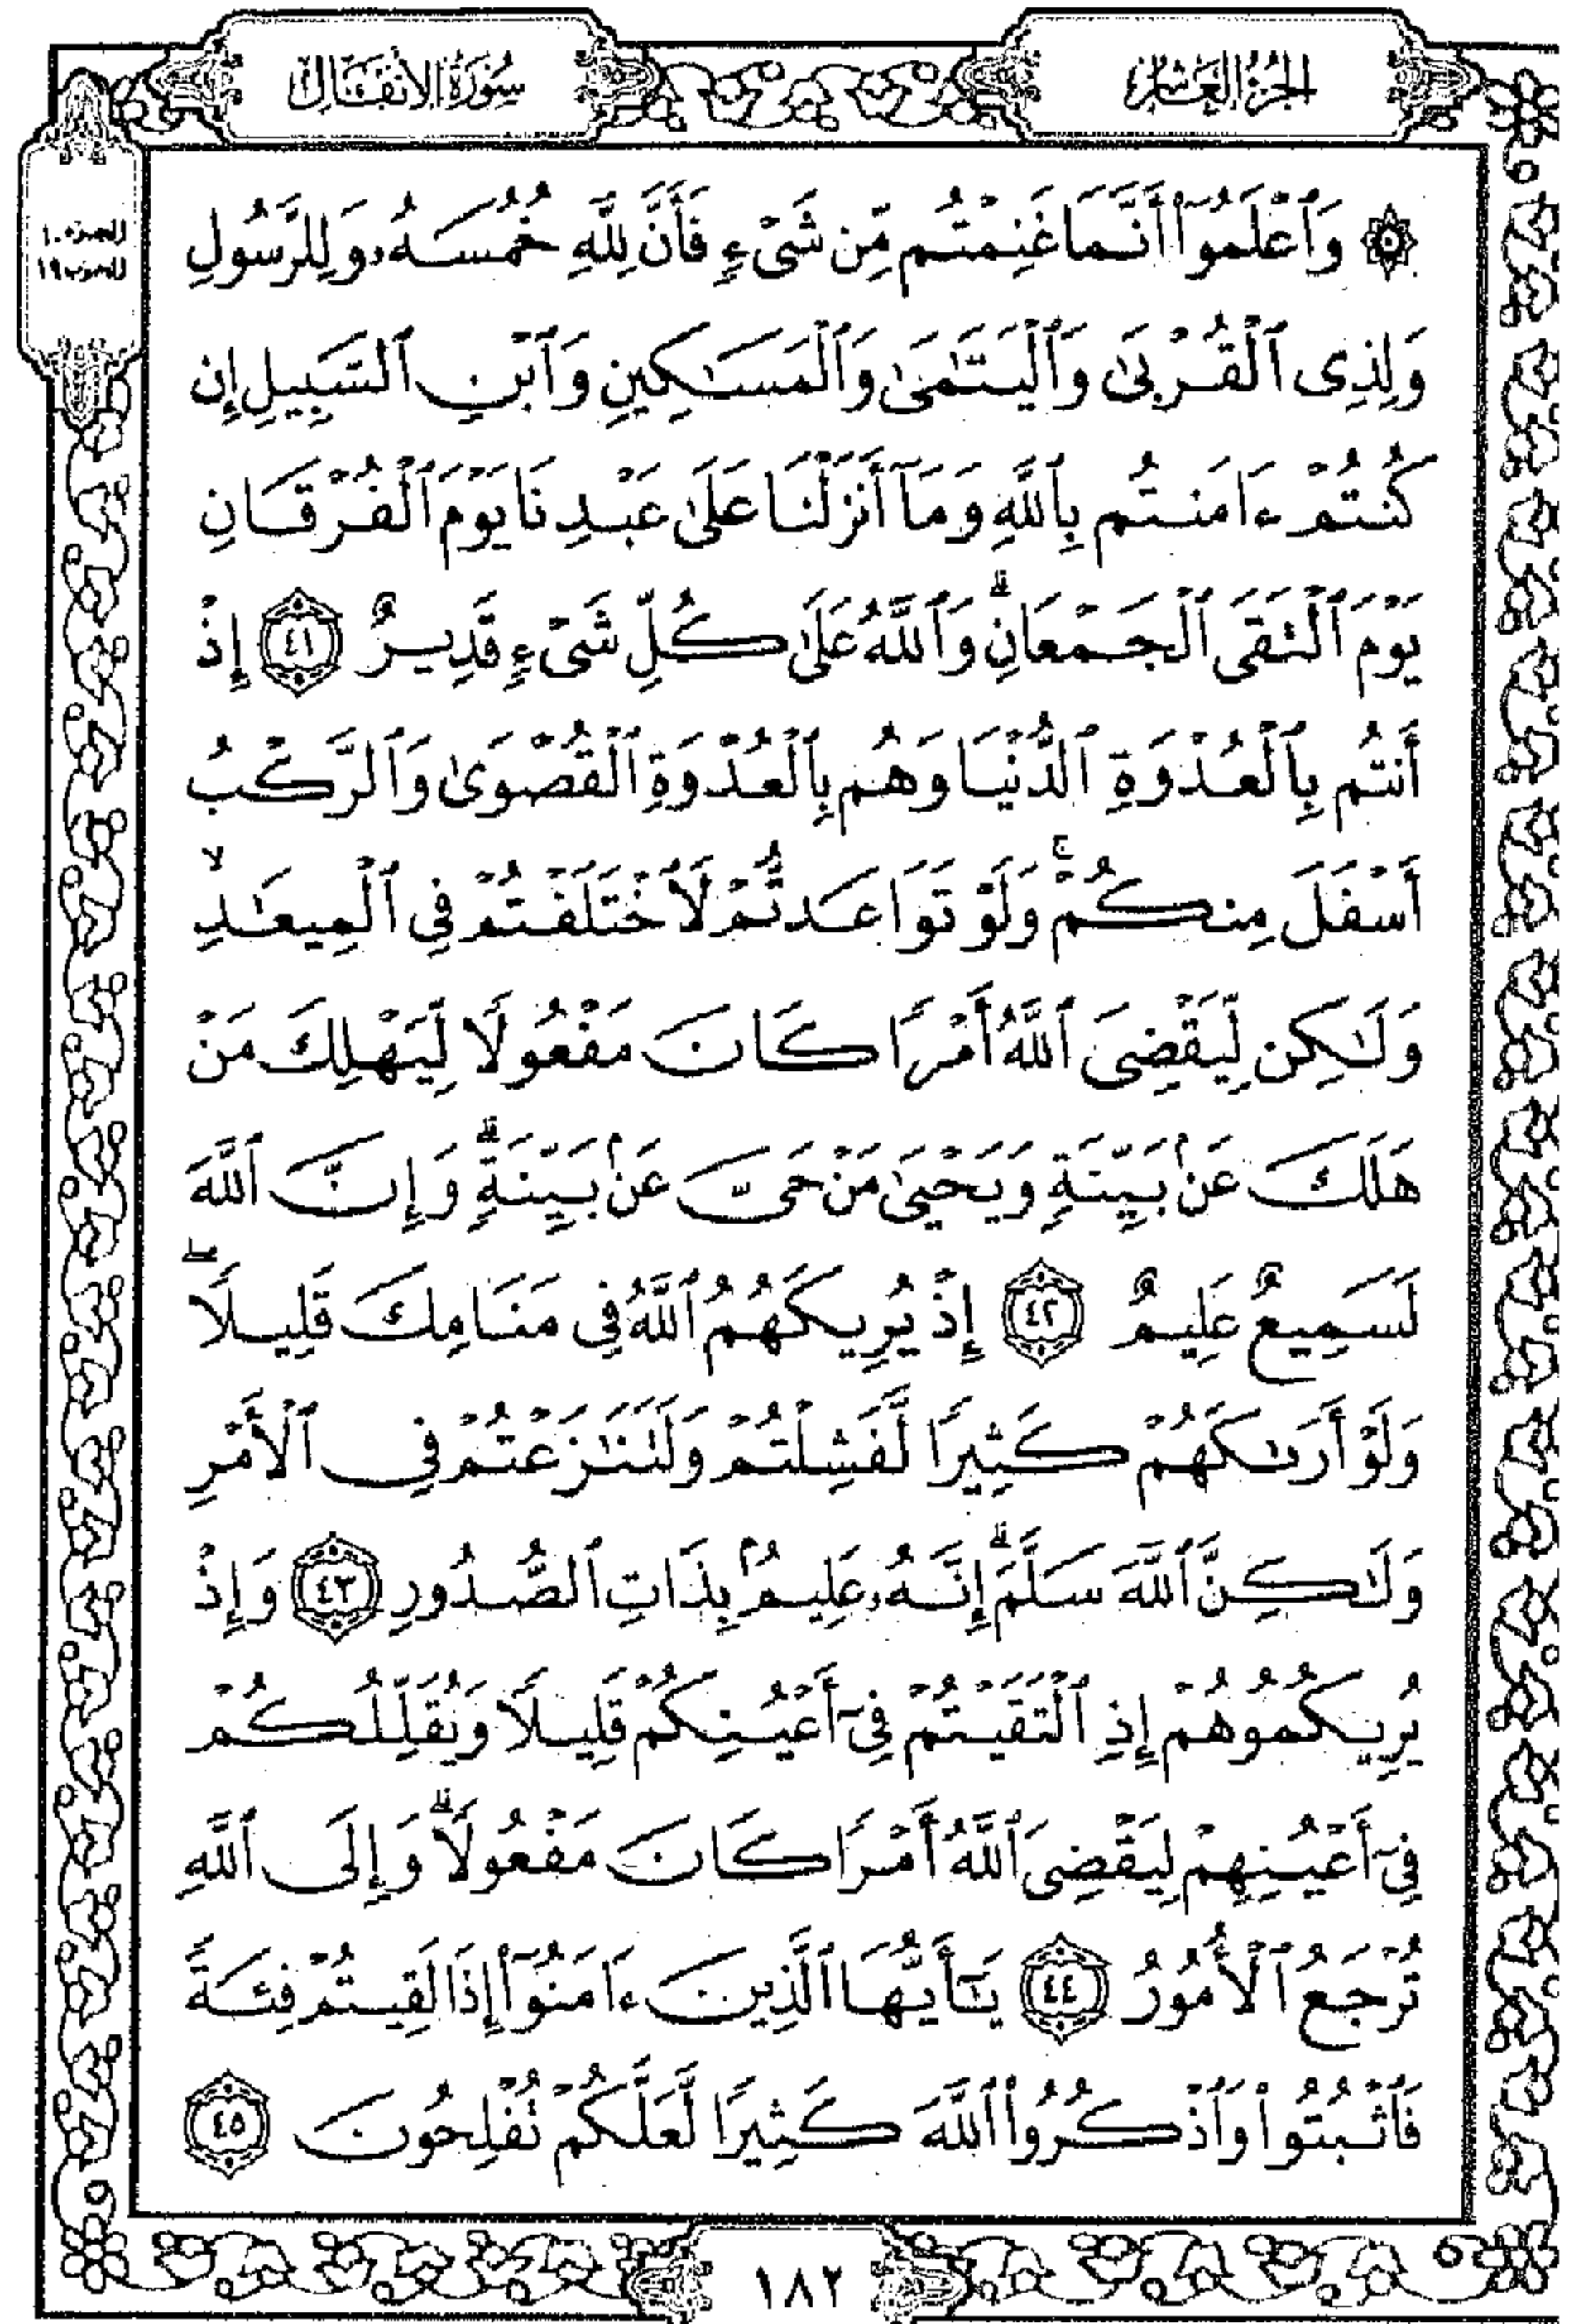 الجزء العاشر
سورة الأنفال
الجزء ١٠
الحزب ١٩
۞ وَٱعْلَمُوٓا۟ أَنَّمَا غَنِمْتُم مِّن شَىْءٍ فَأَنَّ لِلَّهِ خُمُسَهُۥ وَلِلرَّسُولِ
وَلِذِى ٱلْقُرْبَىٰ وَٱلْيَتَٰمَىٰ وَٱلْمَسَٰكِينِ وَٱبْنِ ٱلسَّبِيلِ إِن
كُنتُمْ ءَامَنتُم بِٱللَّهِ وَمَآ أَنزَلْنَا عَلَىٰ عَبْدِنَا يَوْمَ ٱلْفُرْقَانِ
يَوْمَ ٱلْتَقَى ٱلْجَمْعَانِ ۗ وَٱللَّهُ عَلَىٰ كُلِّ شَىْءٍ قَدِيرٌ ٤١ إِذْ
أَنتُم بِٱلْعُدْوَةِ ٱلدُّنْيَا وَهُم بِٱلْعُدْوَةِ ٱلْقُصْوَىٰ وَٱلرَّكْبُ
أَسْفَلَ مِنكُمْ ۚ وَلَوْ تَوَاعَدتُّمْ لَٱخْتَلَفْتُمْ فِى ٱلْمِيعَٰدِ ۙ
وَلَٰكِن لِّيَقْضِىَ ٱللَّهُ أَمْرًا كَانَ مَفْعُولًا لِّيَهْلِكَ مَنْ
هَلَكَ عَنۢ بَيِّنَةٍ وَيَحْيَىٰ مَنْ حَىَّ عَنۢ بَيِّنَةٍ ۗ وَإِنَّ ٱللَّهَ
لَسَمِيعٌ عَلِيمٌ ٤٢ إِذْ يُرِيكَهُمُ ٱللَّهُ فِى مَنَامِكَ قَلِيلًا ۖ
وَلَوْ أَرَىٰكَهُمْ كَثِيرًا لَّفَشِلْتُمْ وَلَتَنَٰزَعْتُمْ فِى ٱلْأَمْرِ
وَلَٰكِنَّ ٱللَّهَ سَلَّمَ ۗ إِنَّهُۥ عَلِيمٌۢ بِذَاتِ ٱلصُّدُورِ ٤٣ وَإِذْ
يُرِيكُمُوهُمْ إِذِ ٱلْتَقَيْتُمْ فِىٓ أَعْيُنِكُمْ قَلِيلًا وَيُقَلِّلُكُمْ
فِىٓ أَعْيُنِهِمْ لِيَقْضِىَ ٱللَّهُ أَمْرًا كَانَ مَفْعُولًا ۗ وَإِلَى ٱللَّهِ
تُرْجَعُ ٱلْأُمُورُ ٤٤ يَٰٓأَيُّهَا ٱلَّذِينَ ءَامَنُوٓا۟ إِذَا لَقِيتُمْ فِئَةً
فَٱثْبُتُوا۟ وَٱذْكُرُوا۟ ٱللَّهَ كَثِيرًا لَّعَلَّكُمْ تُفْلِحُونَ ٤٥
١٨٢